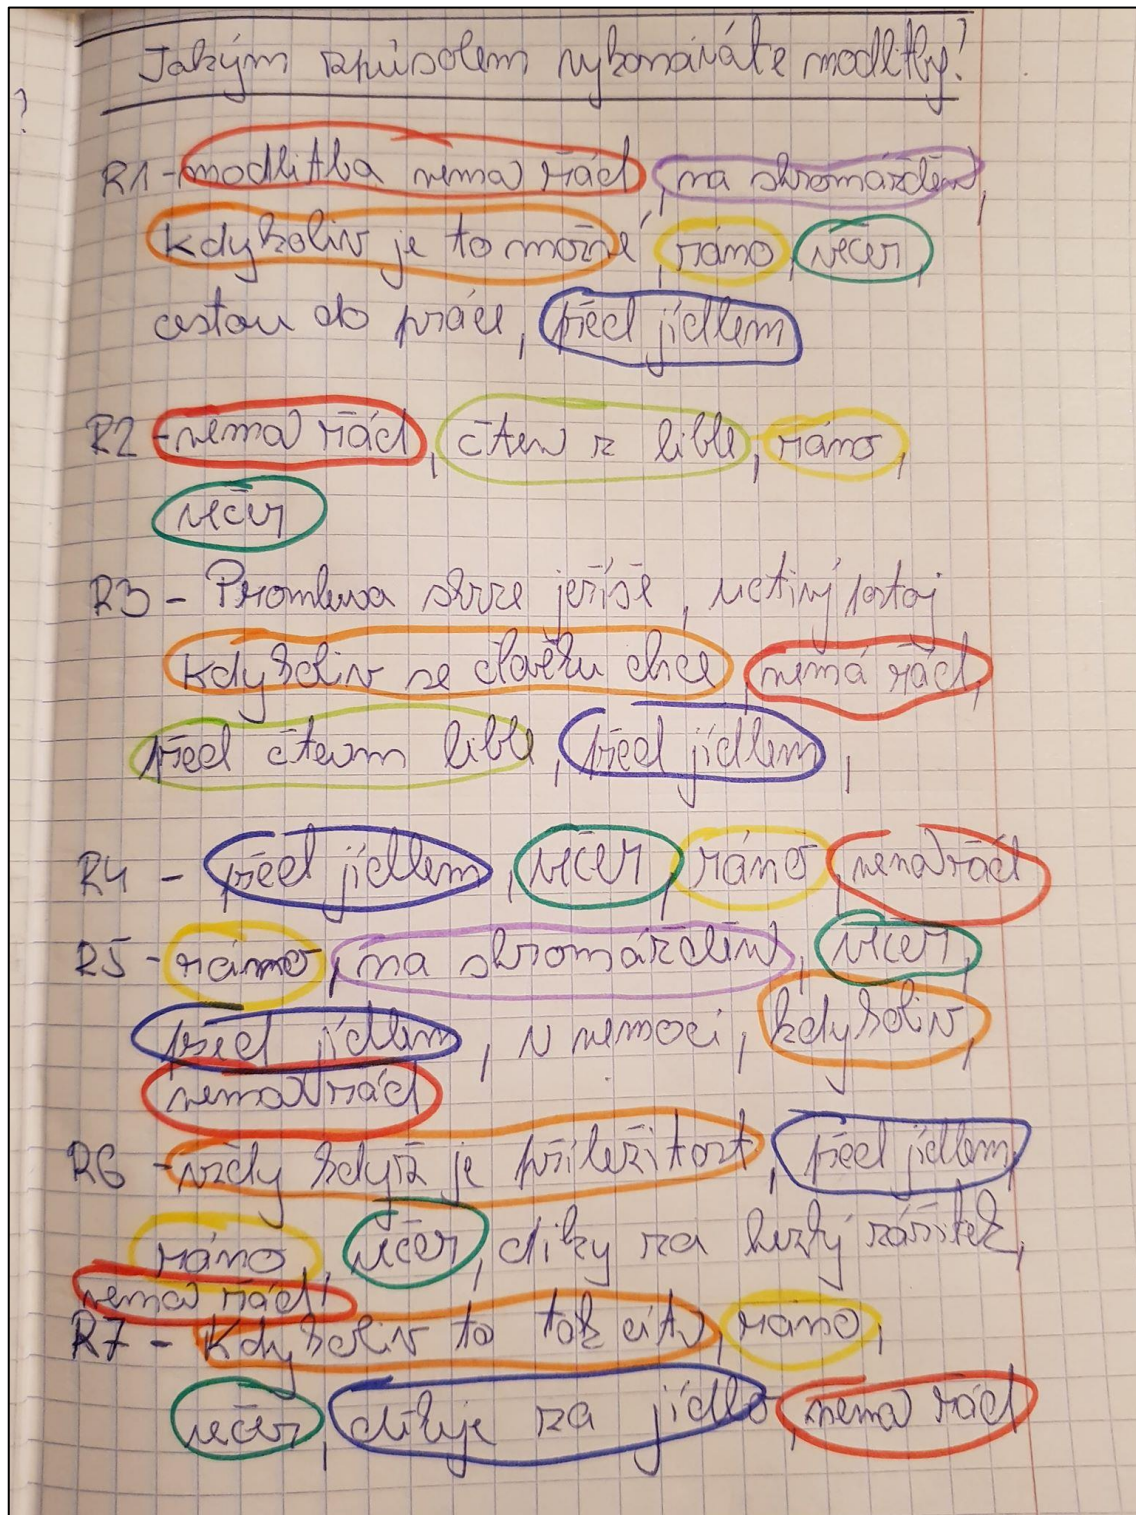 Jakým způsobem vykonáváte modlitby?
?
R1 - modlitba nemá řád, na shromáždění,
kdykoliv je to možné, ráno, večer,
cestou do práce, před jídlem
R2 - nemá řád, čtení z bible, ráno,
večer
R3 - Promluva skrze ježíše, uctivý postoj
kdykoliv se člověku chce, nemá řád,
před čtením bible, před jídlem,
R4 - před jídlem, večer, ráno, nemá řád
R5 - ráno, na shromáždění, večer,
před jídlem, v nemoci, kdykoliv,
nemá řád
R6 - vždy když je příležitost, před jídlem,
ráno, večer, díky za hezký zážitek,
nemá řád!
R7 - Kdykoliv to tak cítí, ráno,
večer, děkuje za jídlo, nemá řád